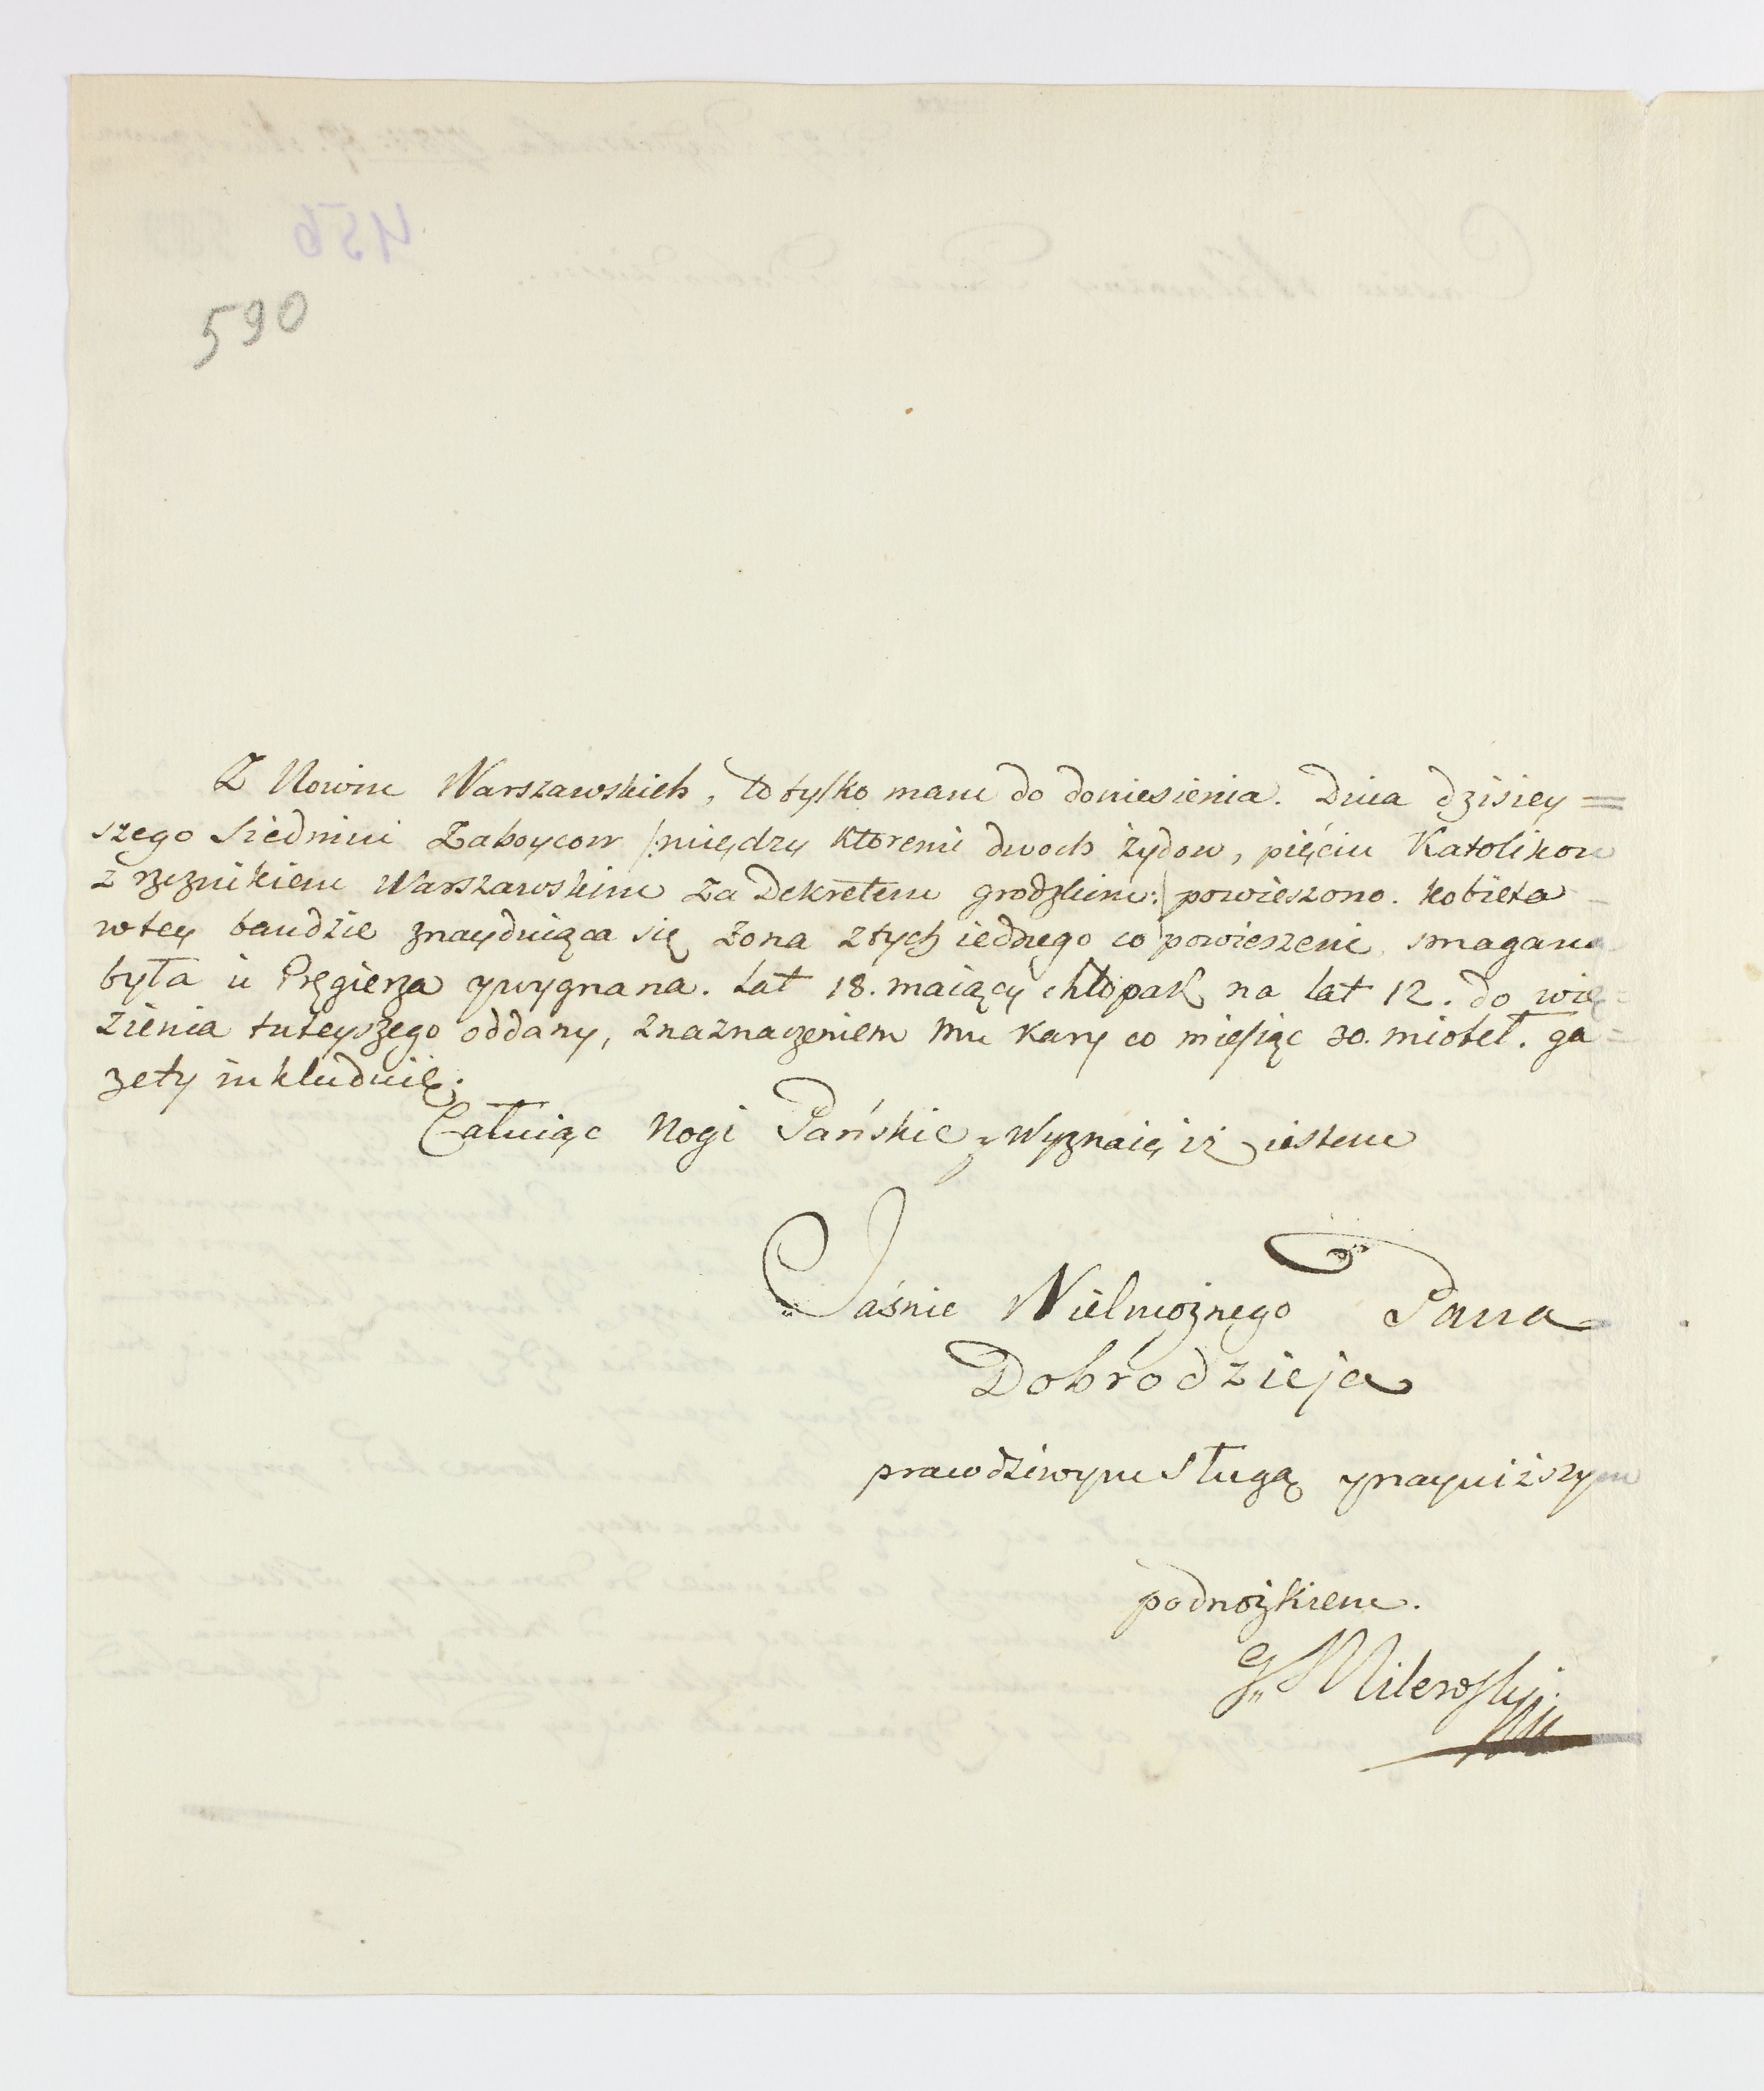 456
590
Z Nowin Warszawskich, to tylko mam do doniesienia. Dnia dzisiey=
szego siedmiu Zaboycow /:między ktoremi dwoch żydow, pięciu Katolikow
z rzeznikiem Warszawskim za Dekretem grodzkim:/ powieszono. kobieta
w tey bandzie znayduiąca się żona z tych iednego co powieszeni smagana
była u Pręgierza y wygnana. Lat 18. maiący chłopak na lat 12. do wię=
zienia tuteyszego oddany, z naznaczeniem mu kary co miesiąc 30. mioteł. ga=
zety inkluduię.
Całuiąc Nogi Pańskie, Wyznaię iż iestem
Jaśnie Wielmożnego Pana
Dobrodzieja
prawdziwym sługą y nayniższym
podnożkiem.
J. Milewski